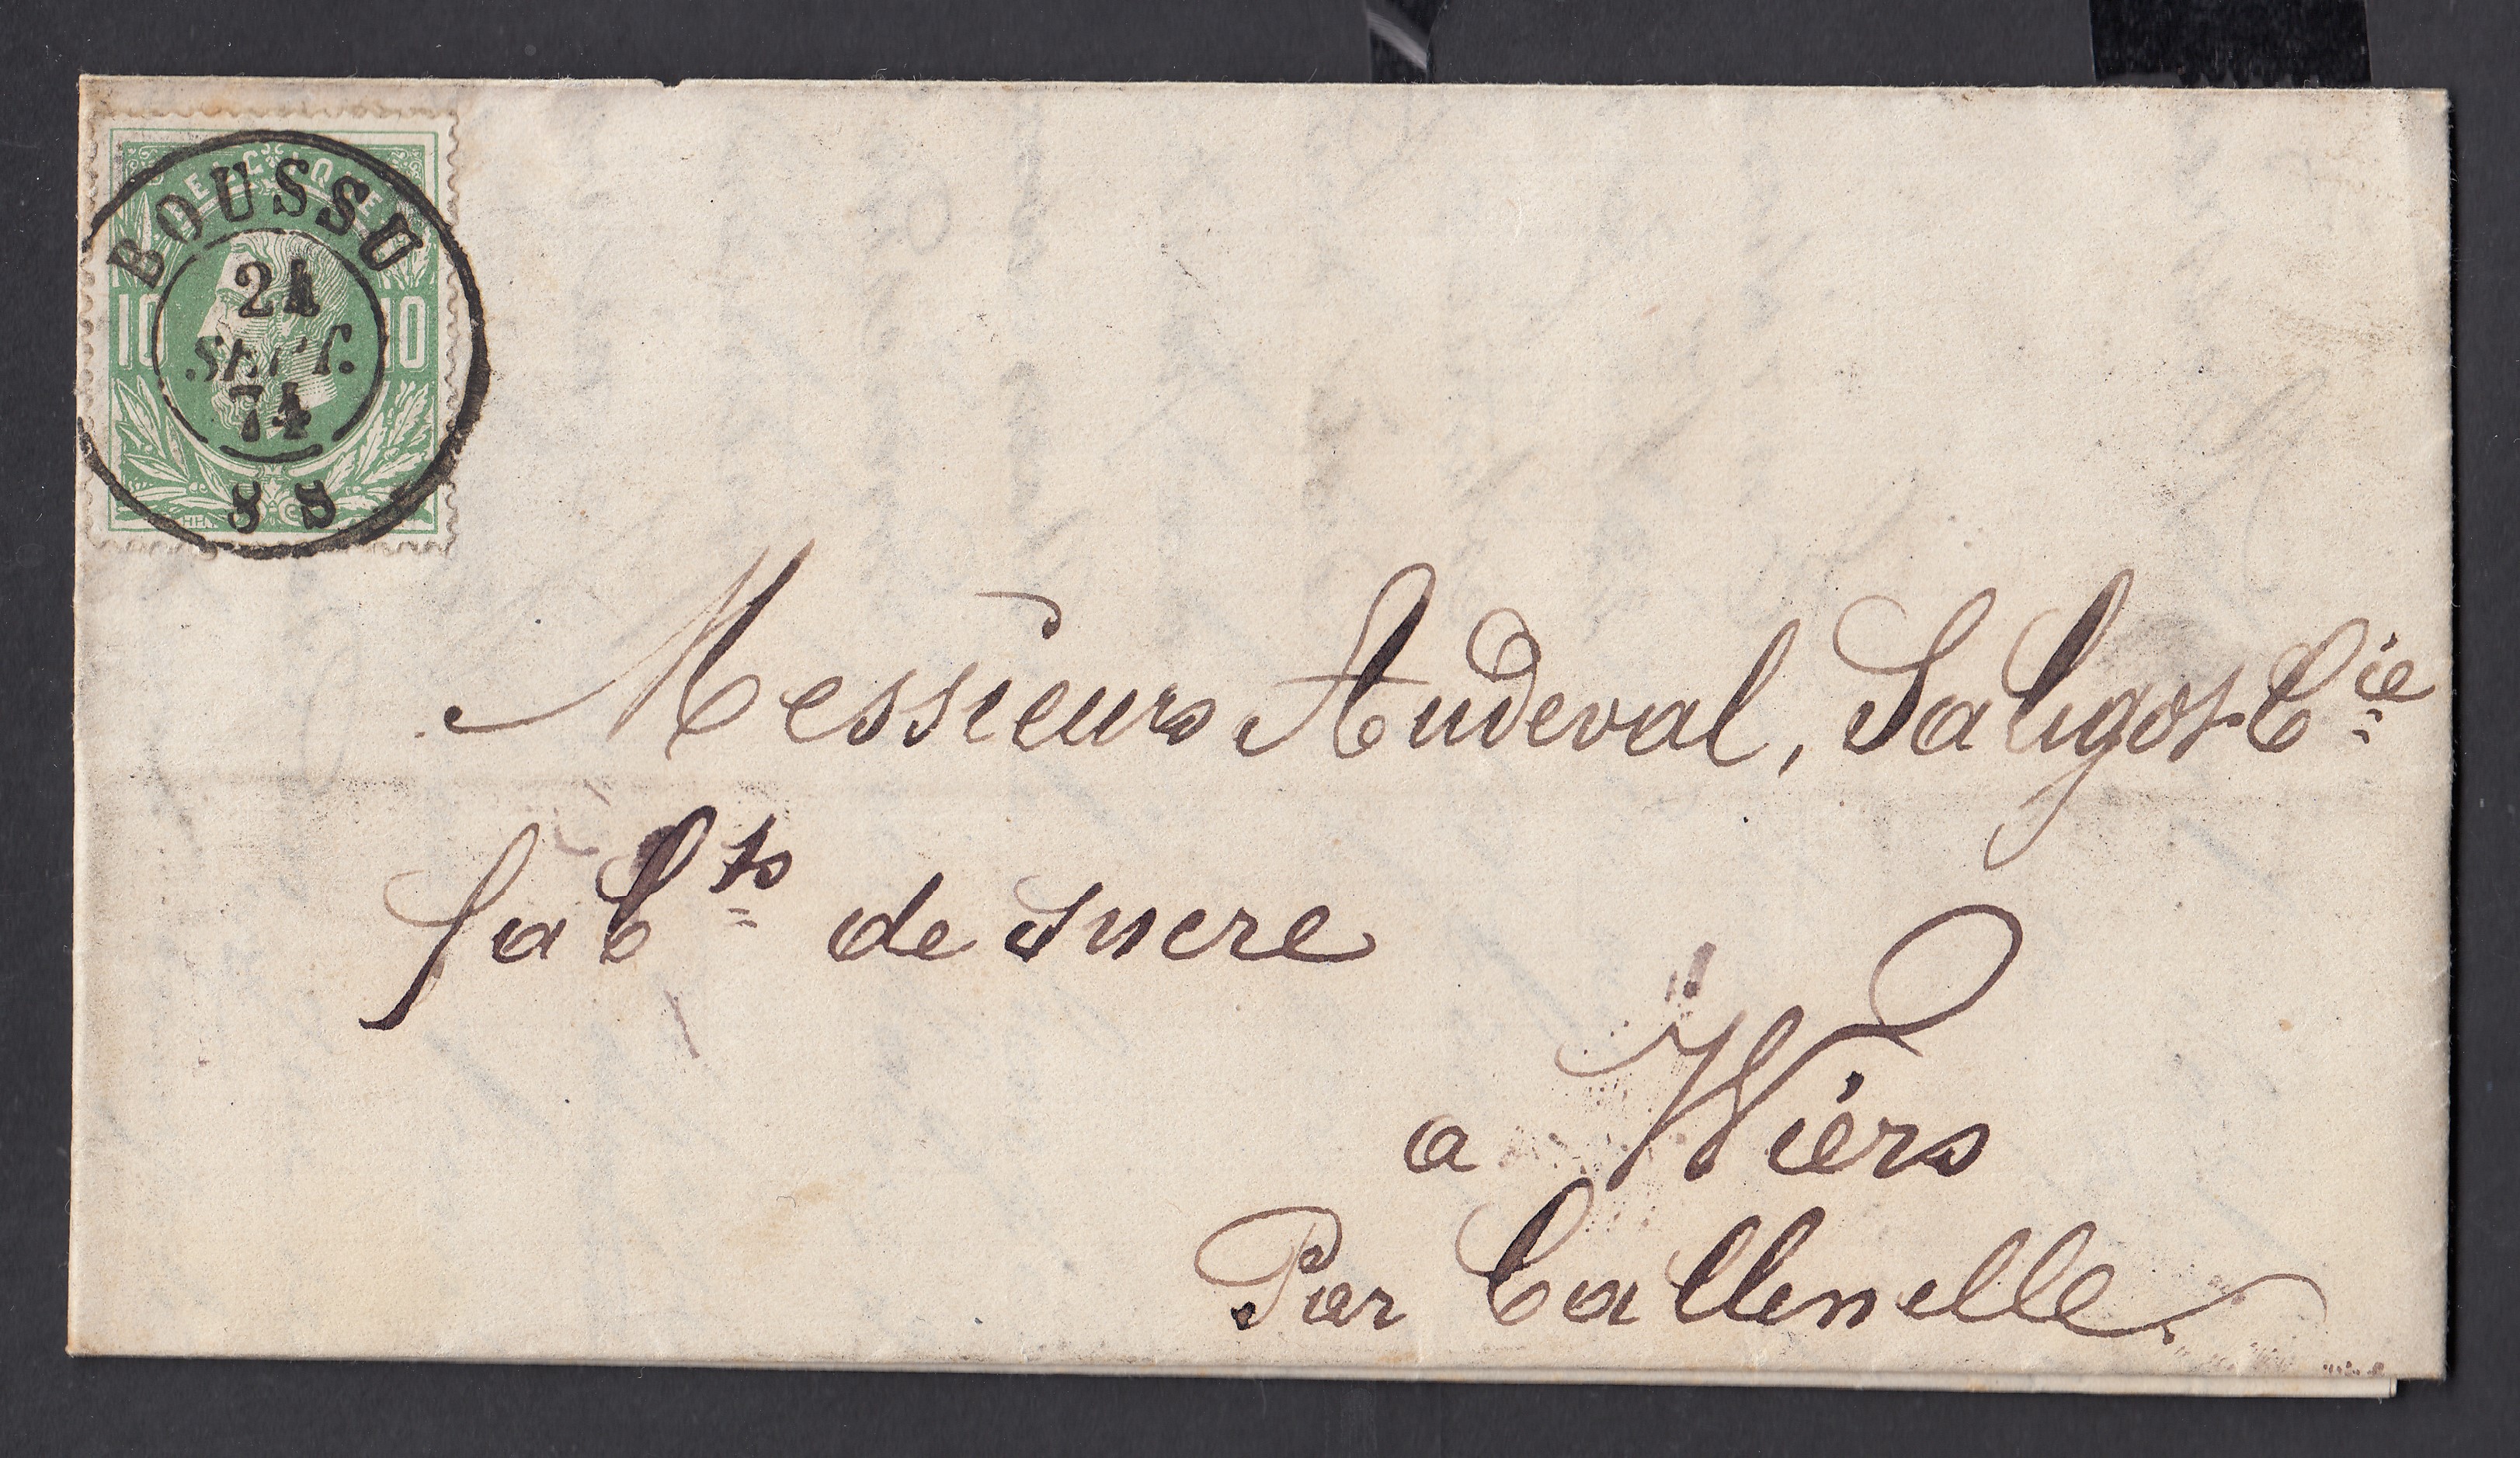 BELGIQUE
BOUSSU
10 10
24
SEPT.
74
Messieurs Audeval, Saligot Cie
fabts de sucre
a Wiers
Par Callenelle